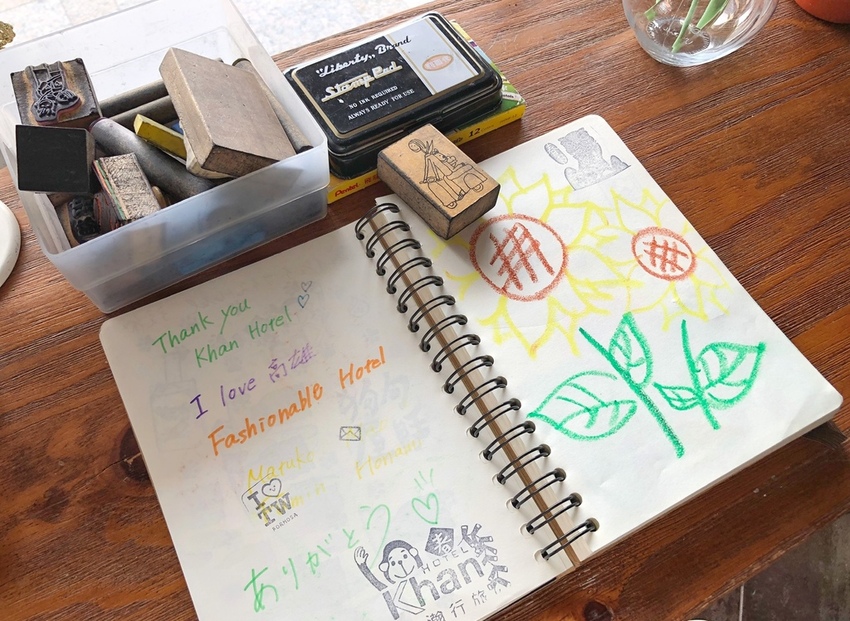 "Liberty" Brand
Stamp Pad
NO INK REQUIRED
ALWAYS READY FOR USE
Pentel
12
Thank you
Khan Hotel.
I love 高雄
Fashionable Hotel
I ♡
TW
FORMOSA
ありがとう♡
君
HOTEL
Khan
潮行旅